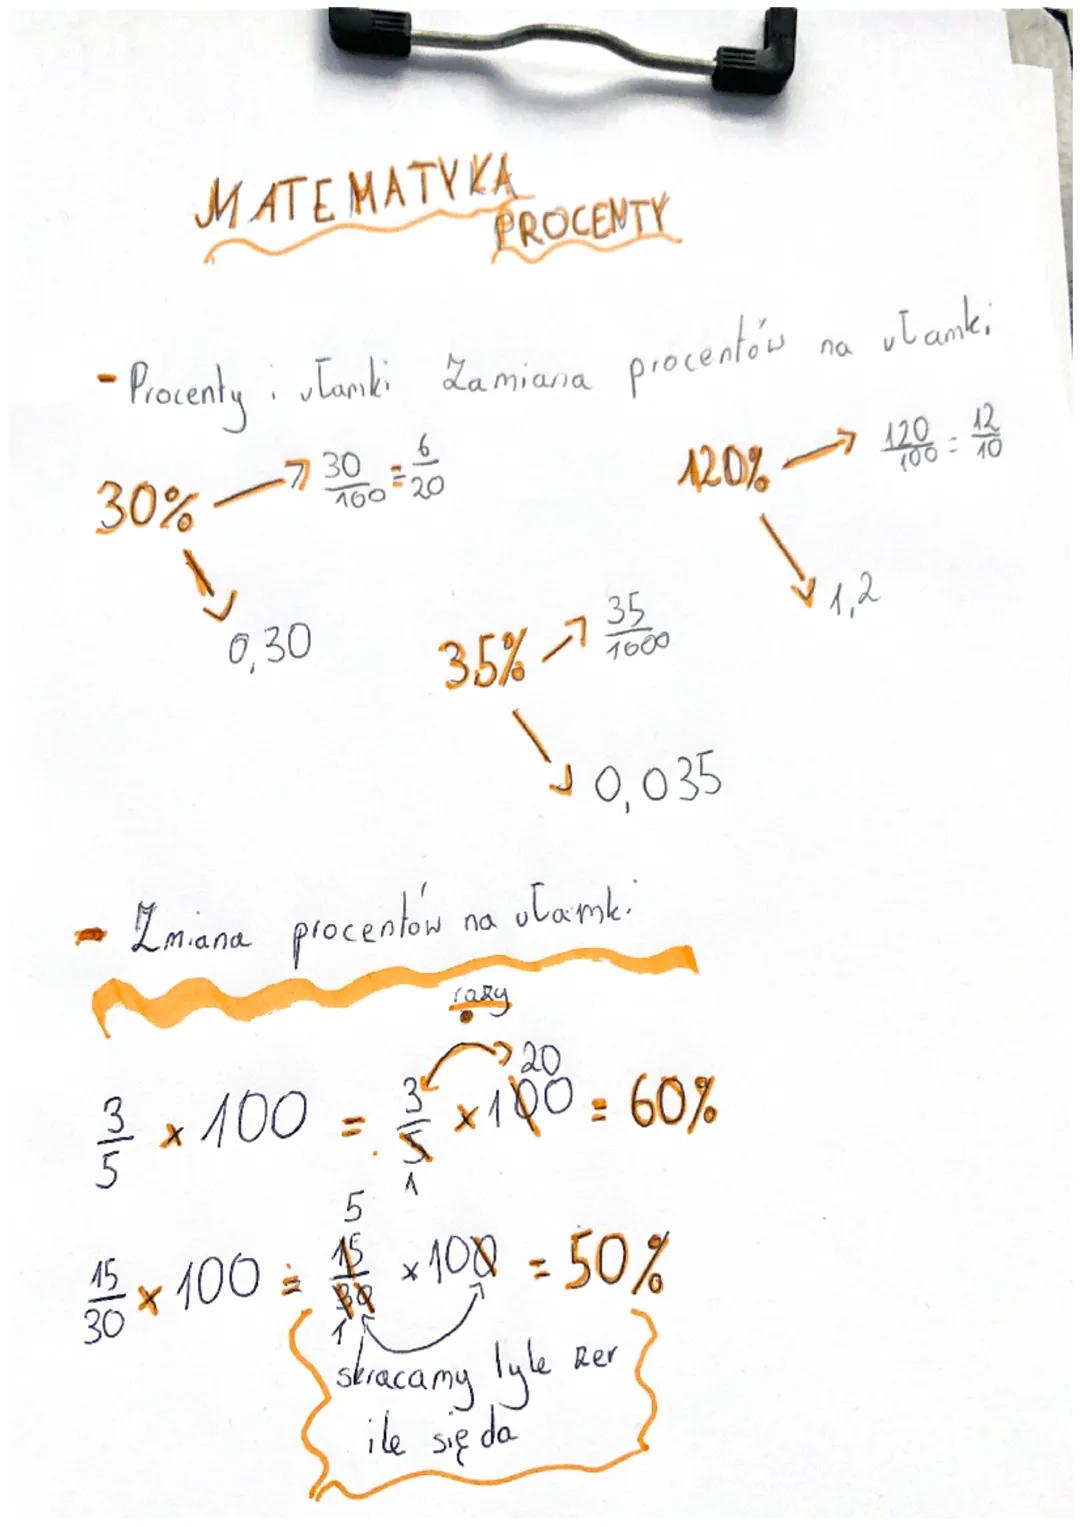 MATEMATYKA
PROCENTY
- Procenty i ułamki Zamiana procentów na ułamki
30% → 30/100 = 6/20
0,30
120% → 120/100 = 12/10
1,2
35% → 35/1000
0,035
- Zmiana procentów na ułamki
razy
3/5 x 100 = 3/5 x 100 = 60%
20
1
5
15/30 x 100 = 15/30 x 100 = 50%
1
skracamy tyle zer
ile się da